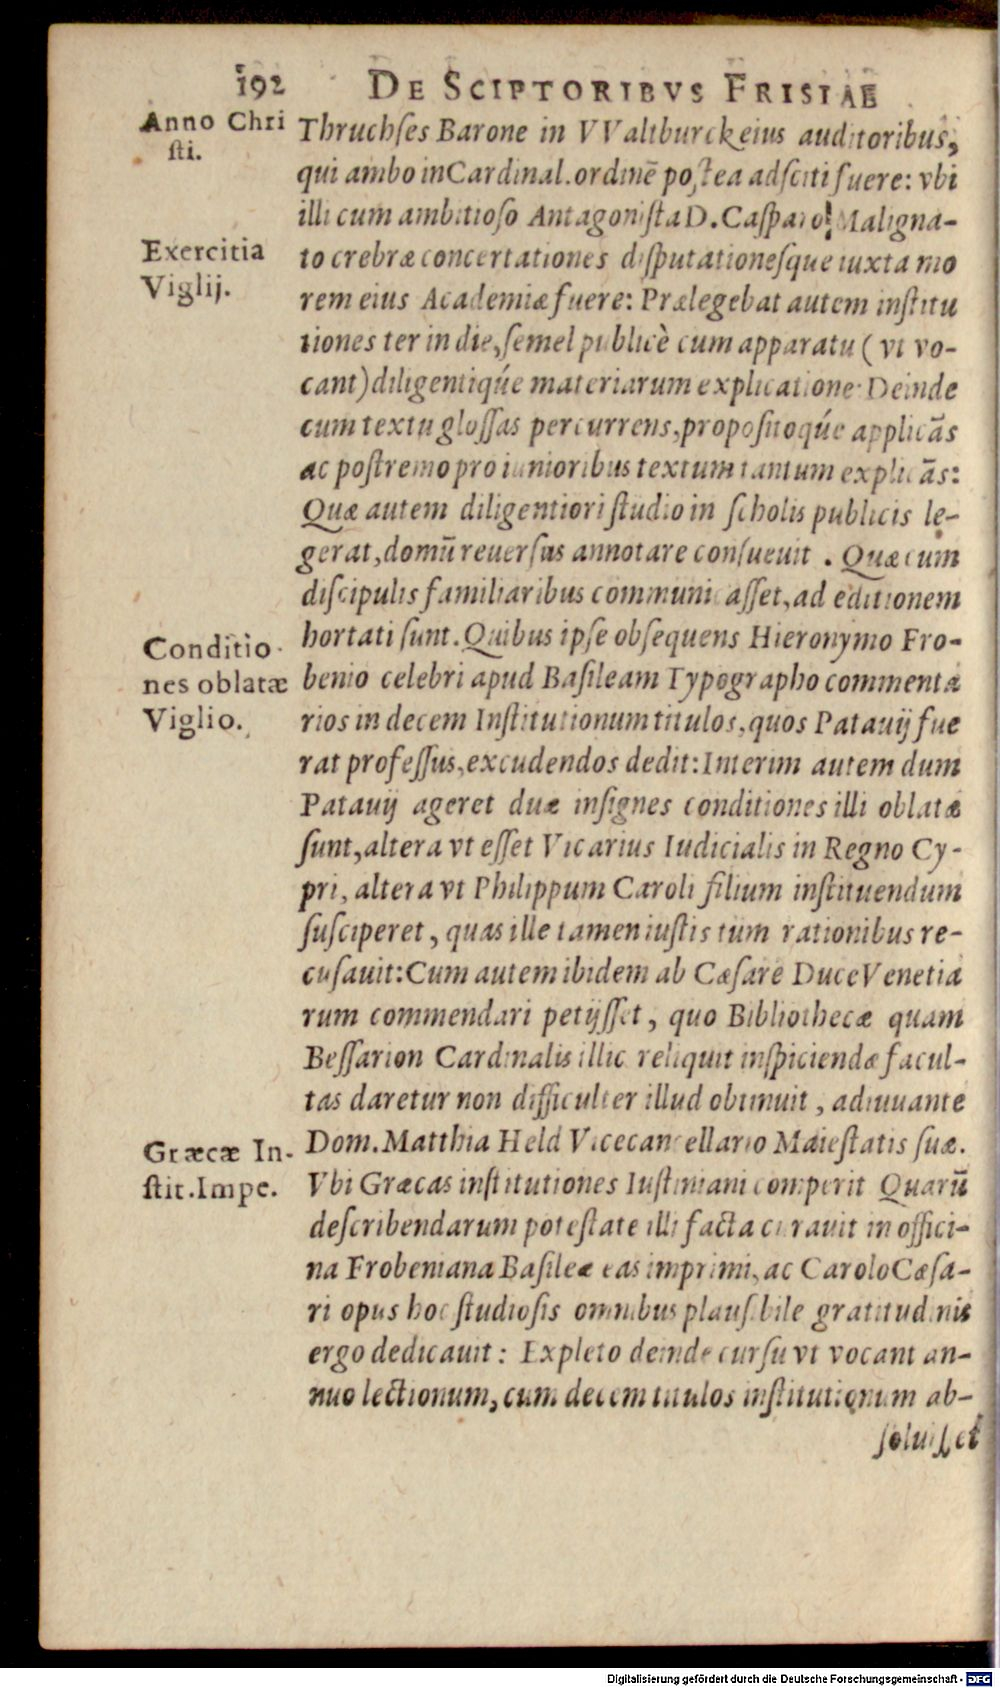 192 DE SCIPTORIBVS FRISIAE
Anno Chri
sti.
Thruchſes Barone in VValtburck eius auditoribus,
qui ambo in Cardinal. ordinē poſtea adſciti fuere: vbi
illi cum ambitioſo Antagoniſta D. Caſparo Maligna-
Exercitia
Viglij.
to crebræ concertationes diſputationeſque iuxta mo
rem eius Academiæ fuere: Prælegebat autem inſtitu
tiones ter in die, ſemel publicè cum apparatu ( vt vo-
cant) diligentiqúe materiarum explicatione Deinde
cum textu gloſſas percurrens, propoſitoqúe applicās
ac poſtremo pro iunioribus textum tantum explicās:
Quæ autem diligentiori ſtudio in ſcholis publicis le-
gerat, domū reuerſus annotare conſueuit . Quæ cum
diſcipulis familiaribus communicaſſet, ad editionem
Conditio-
nes oblatæ
Viglio.
hortati ſunt. Quibus ipſe obſequens Hieronymo Fro-
benio celebri apud Baſileam Typographo commenta
rios in decem Inſtitutionum titulos, quos Patauij fue
rat profeſſus, excudendos dedit: Interim autem dum
Patauij ageret duæ inſignes conditiones illi oblatæ
ſunt, altera vt eſſet Vicarius Iudicialis in Regno Cy-
pri, altera vt Philippum Caroli filium inſtituendum
ſuſciperet, quas ille tamen iuſtis tum rationibus re-
cuſauit: Cum autem ibidem ab Cæſare Duce Venetia
rum commendari petijſſet, quo Bibliothecæ quam
Beſſarion Cardinalis illic reliquit inſpiciendæ facul-
tas daretur non difficulter illud obtinuit, adiuuante
Græcæ In-
ſtit. Impe.
Dom. Matthia Held Vicecancellario Maieſtatis ſuæ.
Vbi Græcas inſtitutiones Iuſtiniani comperit Quarū
deſcribendarum poteſtate illi facta curauit in offici-
na Frobeniana Baſileæ eas imprimi, ac Carolo Cæſa-
ri opus hoc ſtudioſis omnibus plauſibile gratitudinis
ergo dedicauit: Expleto deinde curſu vt vocant an-
nuo lectionum, cum decem titulos inſtitutionum ab-
ſoluiſſet
Digitalisierung gefördert durch die Deutsche Forschungsgemeinschaft - DFG